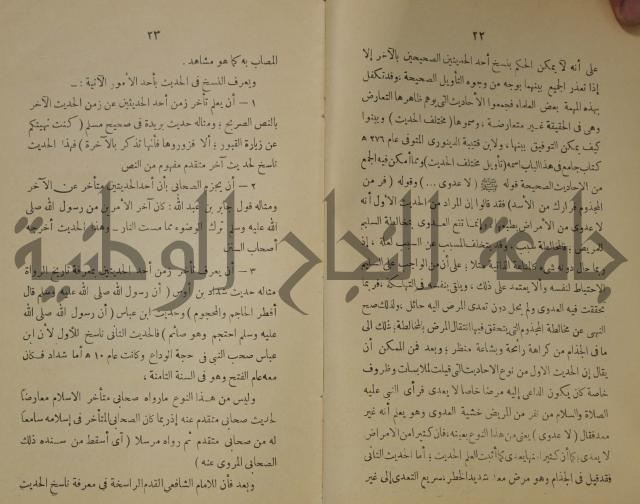 ٢٢
على أنه لا يمكن الحكم بنسخ أحد الحديثين الصحيحين بالآخر إلا
إذا تعذر الجمع بينهما بوجه من وجوه التأويل الصحيحة، وقد تكفل
بهذه المهمة بعض العلماء فجمعوا الأحاديث التى يوهم ظاهرها التعارض
وهى فى الحقيقة غير متعارضة، وسموها (مختلف الحديث) وبينوا
كيف يمكن التوفيق بينها، ولابن قتيبة الدينورى المتوفى عام ٢٧٦ هـ
كتاب جامع فى هذا الباب اسمه (تأويل مختلف الحديث) ومما أمكن فيه الجمع
من الأحاديث الصحيحة قوله ﷺ (لا عدوى ...) وقوله (فر من
المجذوم فرارك من الأسد) فقد قالوا إن المراد من الحديث الأول أنه
لا عدوى من الأمراض بطبعها وإنما تقع العدوى بمخالطة السليم
للمريض، فالمخالطة سبب، وقد يتخلف المسبب عن السبب لعلة، إذ
ربما حال دونه شىء كالمناعة الذاتية مثلا؛ على أن من الواجب على السليم
الاحتياط لنفسه وألا يعتمد على ذلك، ويلقى بنفسه فى التهلكة، فربما
تحققت فيه العدوى ولم يحل دون تعدى المرض اليه حائل، ولذلك صح
النهى عن مخالطة المجذوم التى يتحقق فيها انتقال المرض بالمخالطة؛ ذلك الى
ما فى الجذام من كراهة رائحة وبشاعة منظر؛ وبعد فمن الممكن أن
يقال إن الحديث الاول من نوع الاحاديث التى قيلت لملابسات وظروف
خاصة كأن يكون الداعى إليه مرضا خاصا لا يعدى فرأى النبى عليه
الصلاة والسلام من نفر من المريض خشية العدوى وهو يعلم أنه غير
معد فقال (لا عدوى) يعنى من هذا النوع بعينه، فان كثيرا من الامراض
لا يعدى، كما أن كثيرا منها يعدى كما أثبت العلم الحديث؛ أما الحديث الثانى
فقد قيل فى الجذام وهو مرض معد شديد الخطر، سريع التعدى إلى غير
٢٣
المصاب به كما هو مشاهد.
ويعرف النسخ فى الحديث بأحد الأمور الآتية:—
١ — أن يعلم تأخر زمن أحد الحديثين عن زمن الحديث الآخر
بالنص الصريح؛ ومثاله حديث بريدة فى صحيح مسلم (كنت نهيتكم
عن زيارة القبور؛ ألا فزوروها فأنها تذكر بالآخرة) فهذا الحديث
ناسخ لحديث آخر متقدم مفهوم من النص
٢ — أن يجزم الصحابى بأن أحد الحديثين متأخر عن الآخر
ومثاله قول جابر بن عبد الله: كان آخر الأمرين من رسول الله صلى
الله عليه وسلم ترك الوضوء مما مست النار — وهذا الحديث أخرجه
أصحاب السنن
٣ — أن يعرف تأخر زمن أحد الحديثين بمعرفة تاريخ الرواة
مثاله حديث شداد بن أوس (أن رسول الله صلى الله عليه وسلم قال
أفطر الحاجم والمحجوم) وحديث ابن عباس (أن رسول الله صلى الله
عليه وسلم احتجم وهو صائم) فالحديث الثانى ناسخ للأول لأن ابن
عباس صحب النبى فى حجة الوداع وكانت عام ١٠ هـ أما شداد فكان
معه عام الفتح وهو فى السنة الثامنة،
وليس من هذا النوع مارواه صحابى متأخر الاسلام معارضاً
لحديث صحابى متقدم عنه إذ ربما كان الصحابى المتأخر فى إسلامه سامعاً
له من صحابى متقدم ثم رواه مرسلا (أى أسقط من سنده ذلك
الصحابى المروى عنه)
وبعد فأن للامام الشافعى القدم الراسخة فى معرفة ناسخ الحديث
جامعة النجاح الوطنية